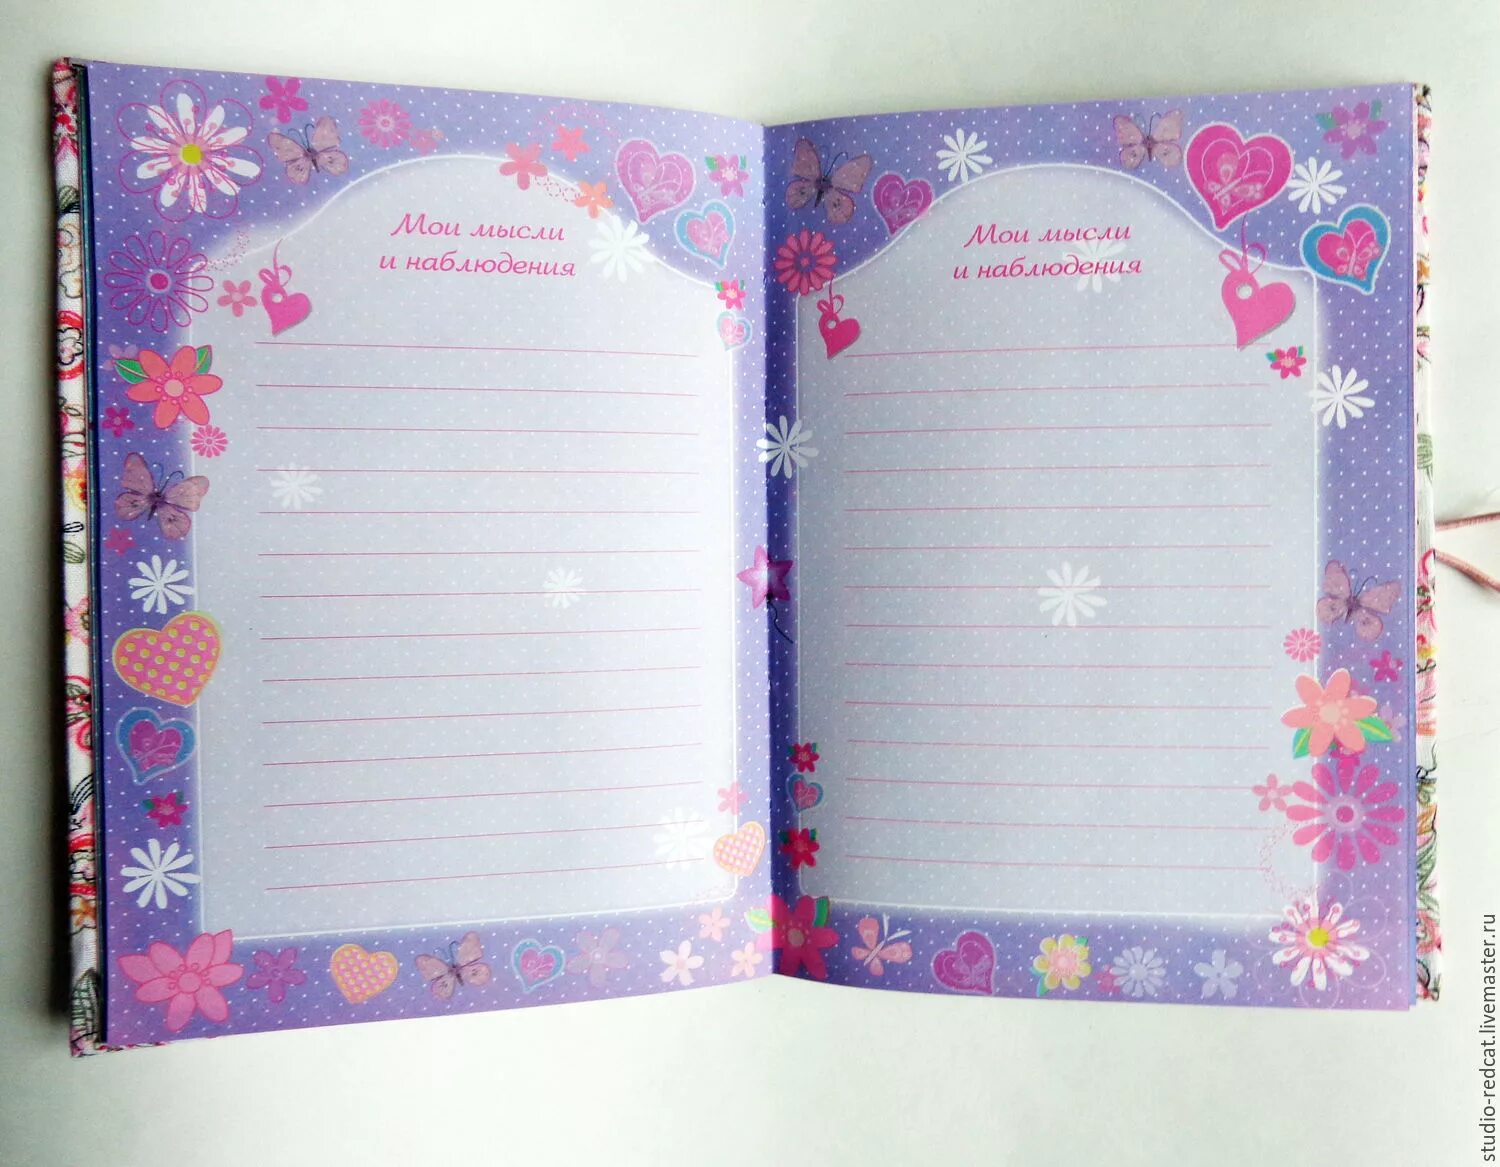 Мои мысли
и наблюдения
Мои мысли
и наблюдения
studio-redcat.livemaster.ru